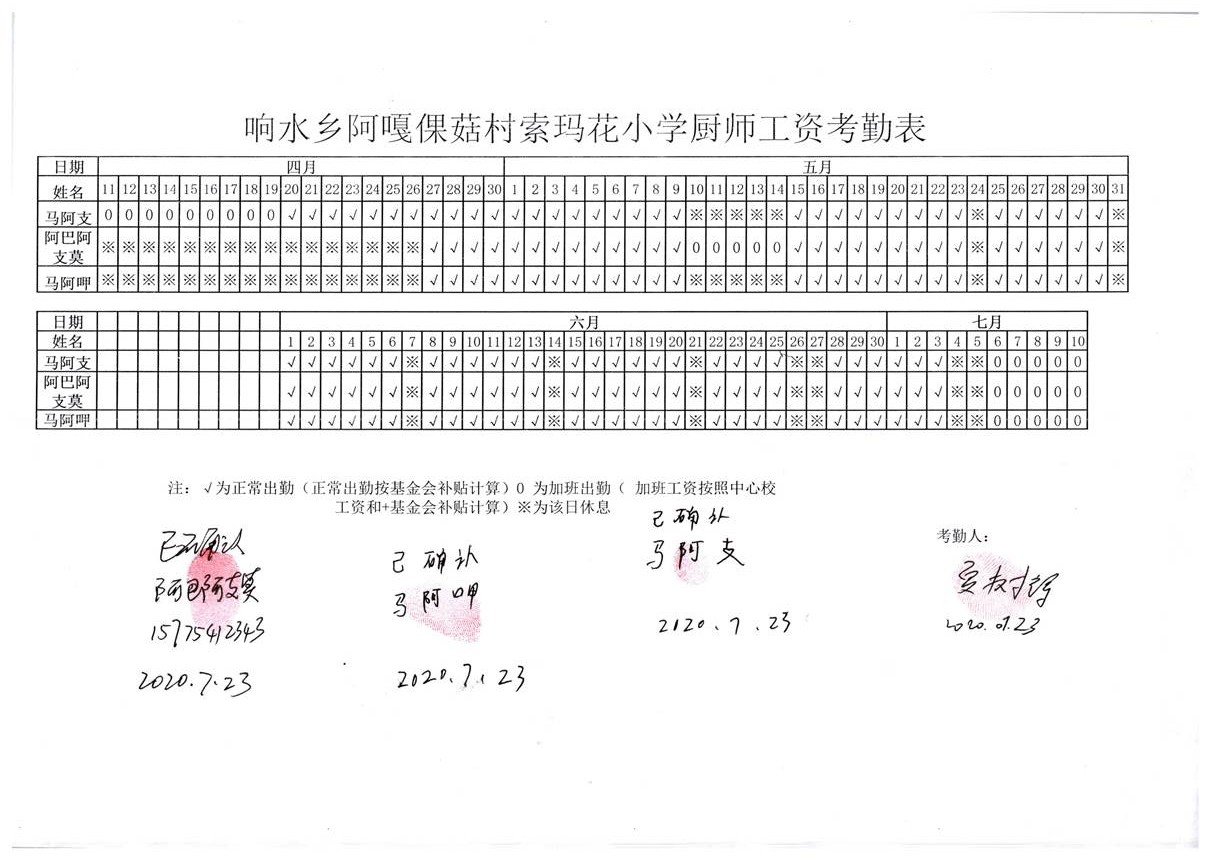 响水乡阿嘎倮菇村索玛花小学厨师工资考勤表
日期 四月 五月
姓名 11 12 13 14 15 16 17 18 19 20 21 22 23 24 25 26 27 28 29 30 1 2 3 4 5 6 7 8 9 10 11 12 13 14 15 16 17 18 19 20 21 22 23 24 25 26 27 28 29 30 31
马阿支 0 0 0 0 0 0 0 0 0 √ √ √ √ √ √ √ √ √ √ √ √ √ √ √ √ √ √ √ √ ※ ※ ※ ※ ※ √ √ √ √ √ √ √ √ √ ※ √ √ √ √ √ √ ※
阿巴阿
支莫 ※ ※ ※ ※ ※ ※ ※ ※ ※ ※ ※ ※ ※ ※ ※ ※ √ √ √ √ √ √ √ √ √ √ √ √ √ 0 0 0 0 0 √ √ √ √ √ √ √ √ √ ※ √ √ √ √ √ √ ※
马阿呷 ※ ※ ※ ※ ※ ※ ※ ※ ※ ※ ※ ※ ※ ※ ※ ※ √ √ √ √ √ √ √ √ √ √ √ √ √ ※ ※ ※ ※ ※ √ √ √ √ √ √ √ √ √ ※ √ √ √ √ √ √ ※
日期 六月 七月
姓名 1 2 3 4 5 6 7 8 9 10 11 12 13 14 15 16 17 18 19 20 21 22 23 24 25 26 27 28 29 30 1 2 3 4 5 6 7 8 9 10
马阿支 √ √ √ √ √ √ ※ √ √ √ √ √ √ ※ √ √ √ √ √ √ ※ √ √ √ √ ※ ※ √ √ √ √ √ √ ※ ※ 0 0 0 0 0
阿巴阿
支莫 √ √ √ √ √ √ ※ √ √ √ √ √ √ ※ √ √ √ √ √ √ ※ √ √ √ √ ※ ※ √ √ √ √ √ √ ※ ※ 0 0 0 0 0
马阿呷 √ √ √ √ √ √ ※ √ √ √ √ √ √ ※ √ √ √ √ √ √ ※ √ √ √ √ ※ ※ √ √ √ √ √ √ ※ ※ 0 0 0 0 0
注：√为正常出勤（正常出勤按基金会补贴计算）0 为加班出勤（ 加班工资按照中心校
工资和+基金会补贴计算）※为该日休息
已确认
阿巴阿支莫
15775412343
2020.7.23
已确认
马阿呷
2020.7.23
已确认
马阿支
2020.7.23
考勤人：
2020.07.23